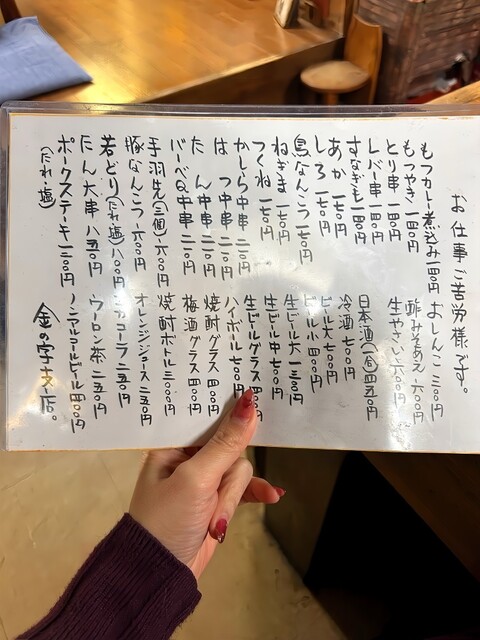 お仕事ご苦労様です。
もつカレー煮込み 一四〇〇円
もつやき 一四〇円
とり串 一四〇円
レバー串 一四〇円
すなぎも 一四〇円
あか 一七〇円
しろ 一七〇円
鳥なんこつ 一九〇円
ねぎま 一七〇円
つくね 一七〇円
かしら中串 二一〇円
はつ中串 二一〇円
たん中串 二一〇円
バーベQ中串 二一〇円
手羽先(三個) 六〇〇円
豚なんこつ 六〇〇円
若どり(たれ・塩) 八〇〇円
たん大串 八五〇円
ポークステーキ 一三〇〇円
(たれ・塩)
おしんこ 三〇〇円
酢みそあえ 六〇〇円
生やさい 六〇〇円
日本酒(一合) 四五〇円
冷酒 七〇〇円
ビール大 七〇〇円
ビール小 四〇〇円
生ビール大 一三〇〇円
生ビール中 七〇〇円
生ビールグラス 四〇〇円
ハイボール 七〇〇円
焼酎グラス 四〇〇円
梅酒グラス 四〇〇円
焼酎ボトル 三〇〇〇円
オレンジジュース 二五〇円
コカコーラ 二五〇円
ウーロン茶 二五〇円
ノンアルコールビール 四〇〇円
金の字支店。